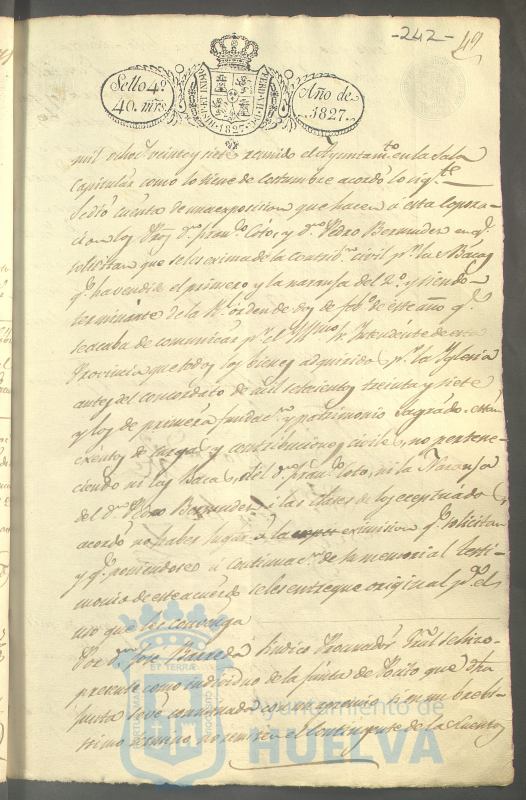 -242- 49
Sello 4º
40. mrs.
HISP. ET IND. R.
1827.
Año de
1827.
mil ochoc.s veinte y siete reunido el Ayuntam.to en la Sala
Capitular como lo tiene de costumbre acordó lo sig.te
Se dió cuenta de una exposicion que hacen á esta Corpora-
cion los Pbros d.n Fran.co Coto, y d.n Pedro Bermudez en q.e
solicitan que se les exima de la contrib.n civil p.r las Bacas
q.e ha vendido el primero y la naranja del 2.º y siendo
terminante de la R.l orden de dos de feb.o de este año q.e
se acaba de comunicar p.r el Yllmo Sr. Yntendente de esta
Provincia que todos los bienes adquiridos p.r la Yglesia
antes del concordato de mil setecientos treinta y siete
y los de primera fundac.n y patrimonio sagrado estan
exentos de cargas y contribuciones civiles, no pertene-
ciendo ni las Bacas del d.n Fran.co Coto, ni la Naranja
del d.n Pedro Bermudez á las clases de los eceptuados
acordó no haber lugar á la eximision q.e solicitan
y q.e poniendose á continuac.n de su memorial testi-
monio de este acuerdo se les entregue original p.a el
uso que les convenga
Por d.n José Barreda Sindico Procurador Gral se hizo
presente como individuo de la Junta de Posito que dha
Junta se vé conminada con un apremio si en un brebi-
simo termino no remite el Contingente de las Cuentas
Ayuntamiento de
HUELVA